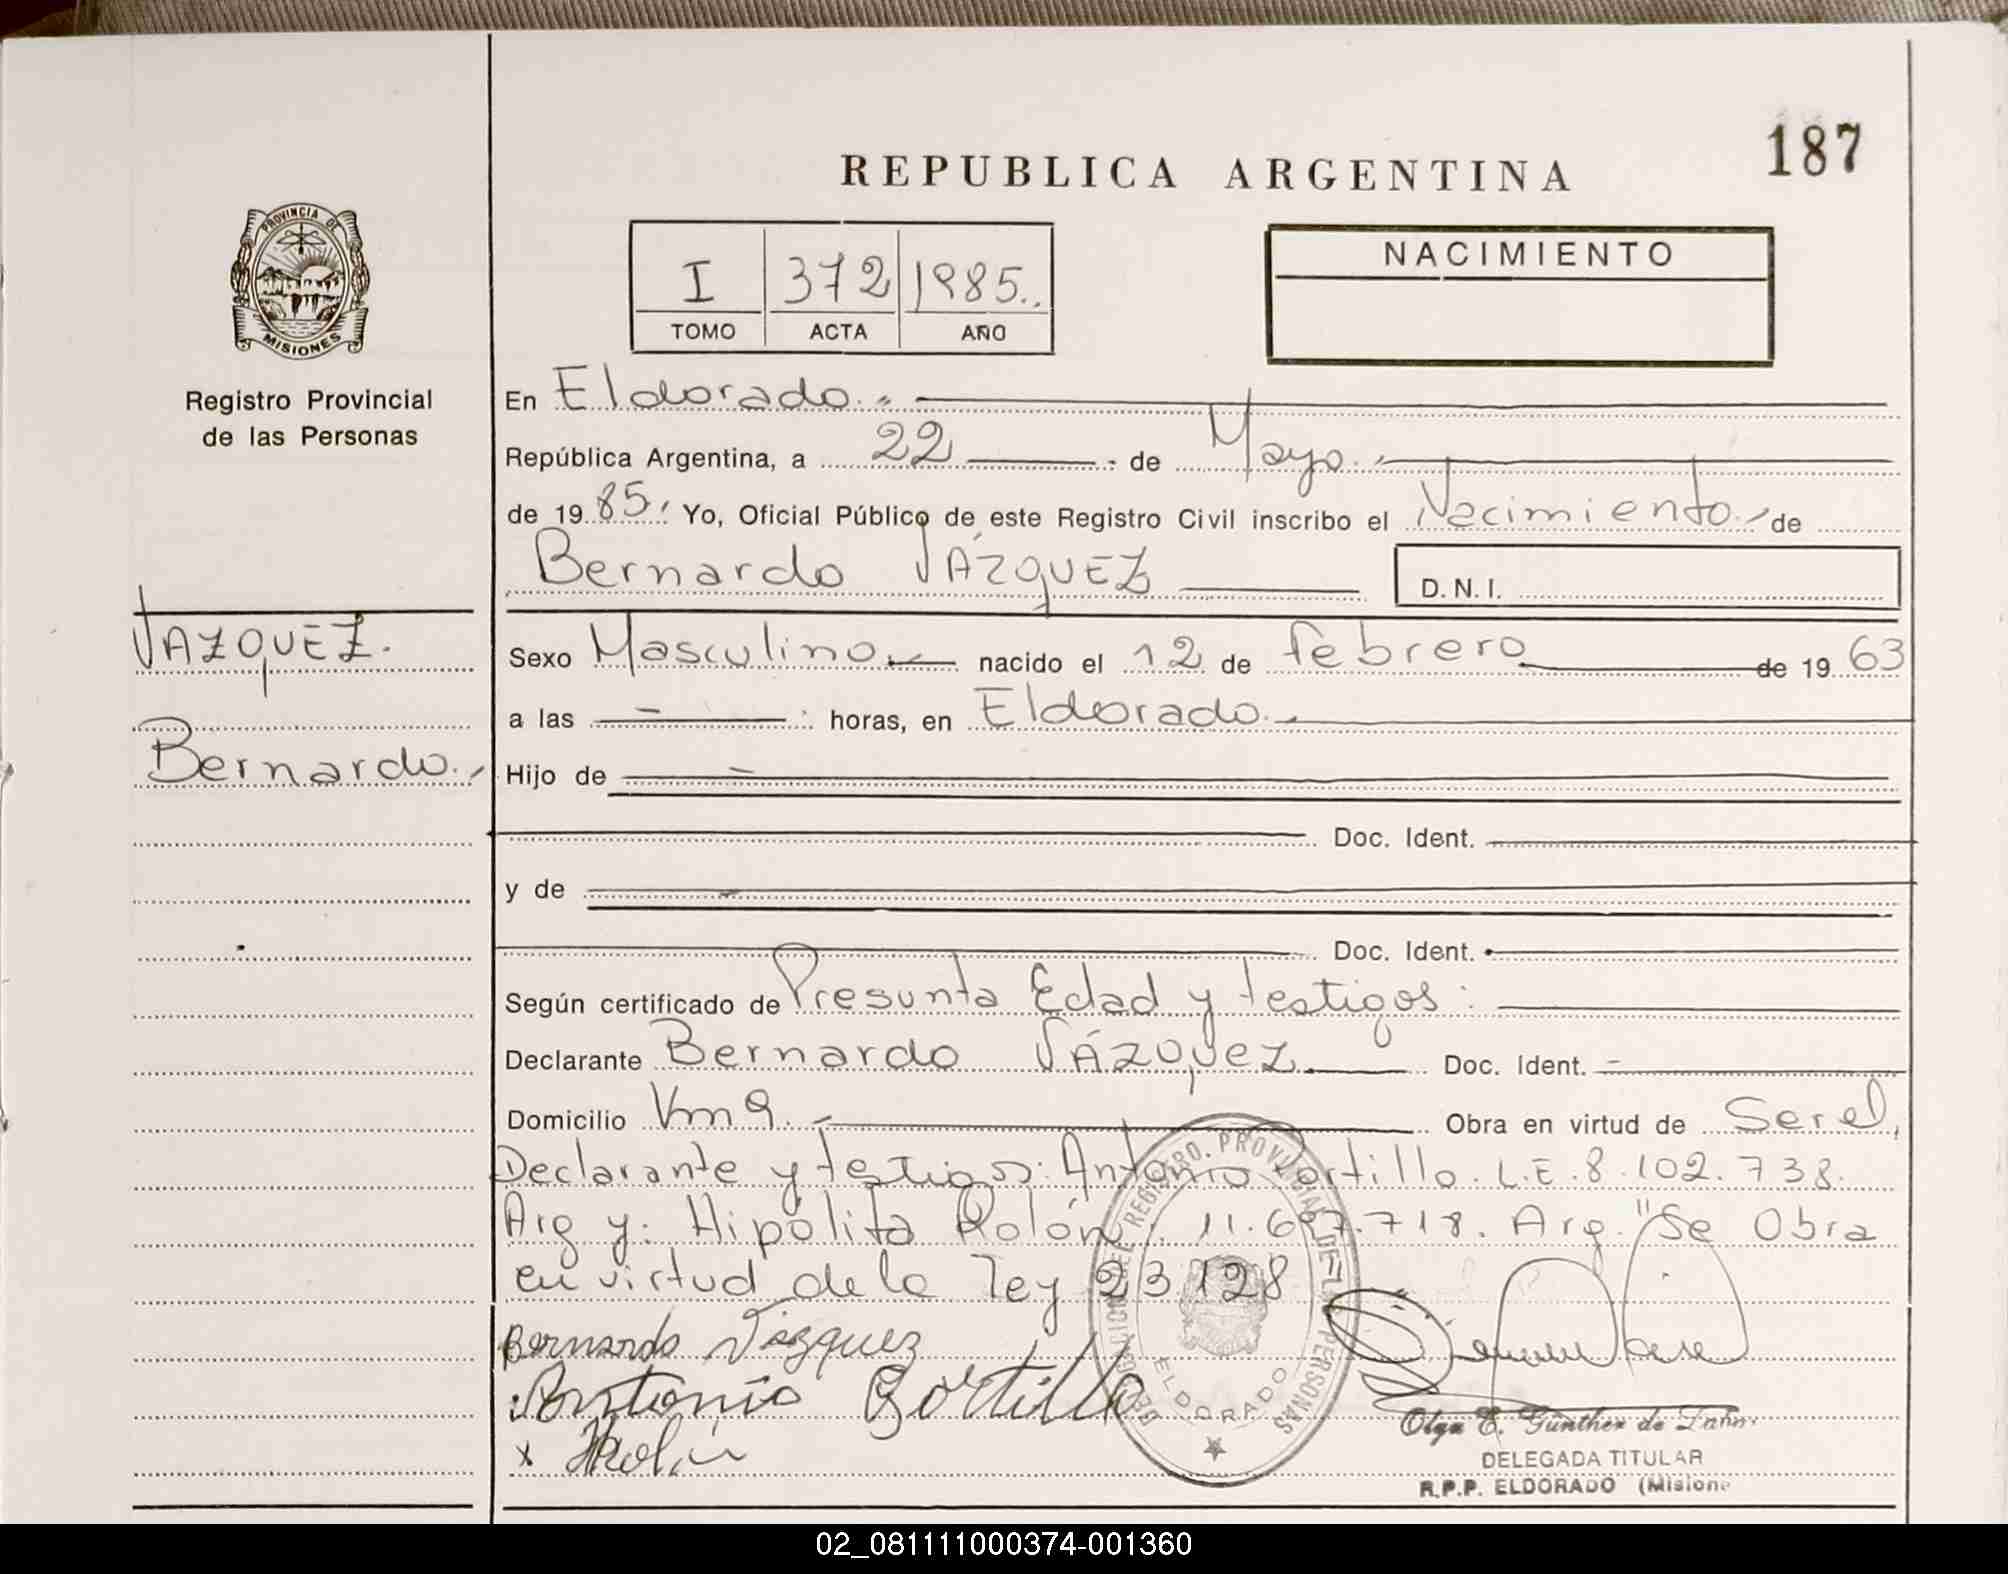 187
REPUBLICA ARGENTINA
PROVINCIA DE
MISIONES
Registro Provincial
de las Personas
I 372 1985..
TOMO ACTA AÑO
NACIMIENTO
En Eldorado.-
República Argentina, a 22 de Mayo.
de 19 85. Yo, Oficial Público de este Registro Civil inscribo el Nacimiento de
Bernardo VÁZQUEZ D.N.I.
VAZQUEZ.
Bernardo.
Sexo Masculino nacido el 12 de febrero de 19 63
a las - horas, en Eldorado.
Hijo de -
Doc. Ident.
y de -
Doc. Ident.
Según certificado de Presunta Edad y testigos:
Declarante Bernardo VÁZQUEZ Doc. Ident. -
Domicilio Obra en virtud de Ser el,
Declarante y testigos: Antonio Portillo. L.E. 8.102.738.
Arg y: Hipólita Rolón, Arg. "Se Obra
en virtud de la ley 23 128
Bernardo Vázquez
Antonio Portillo
x HRolón
DELEGACION DEL REGISTRO. PROVINCIAL DE LAS PERSONAS
ELDORADO
Olga E. Günther de
DELEGADA TITULAR
R.P.P. ELDORADO (Misione
02_081111000374-001360